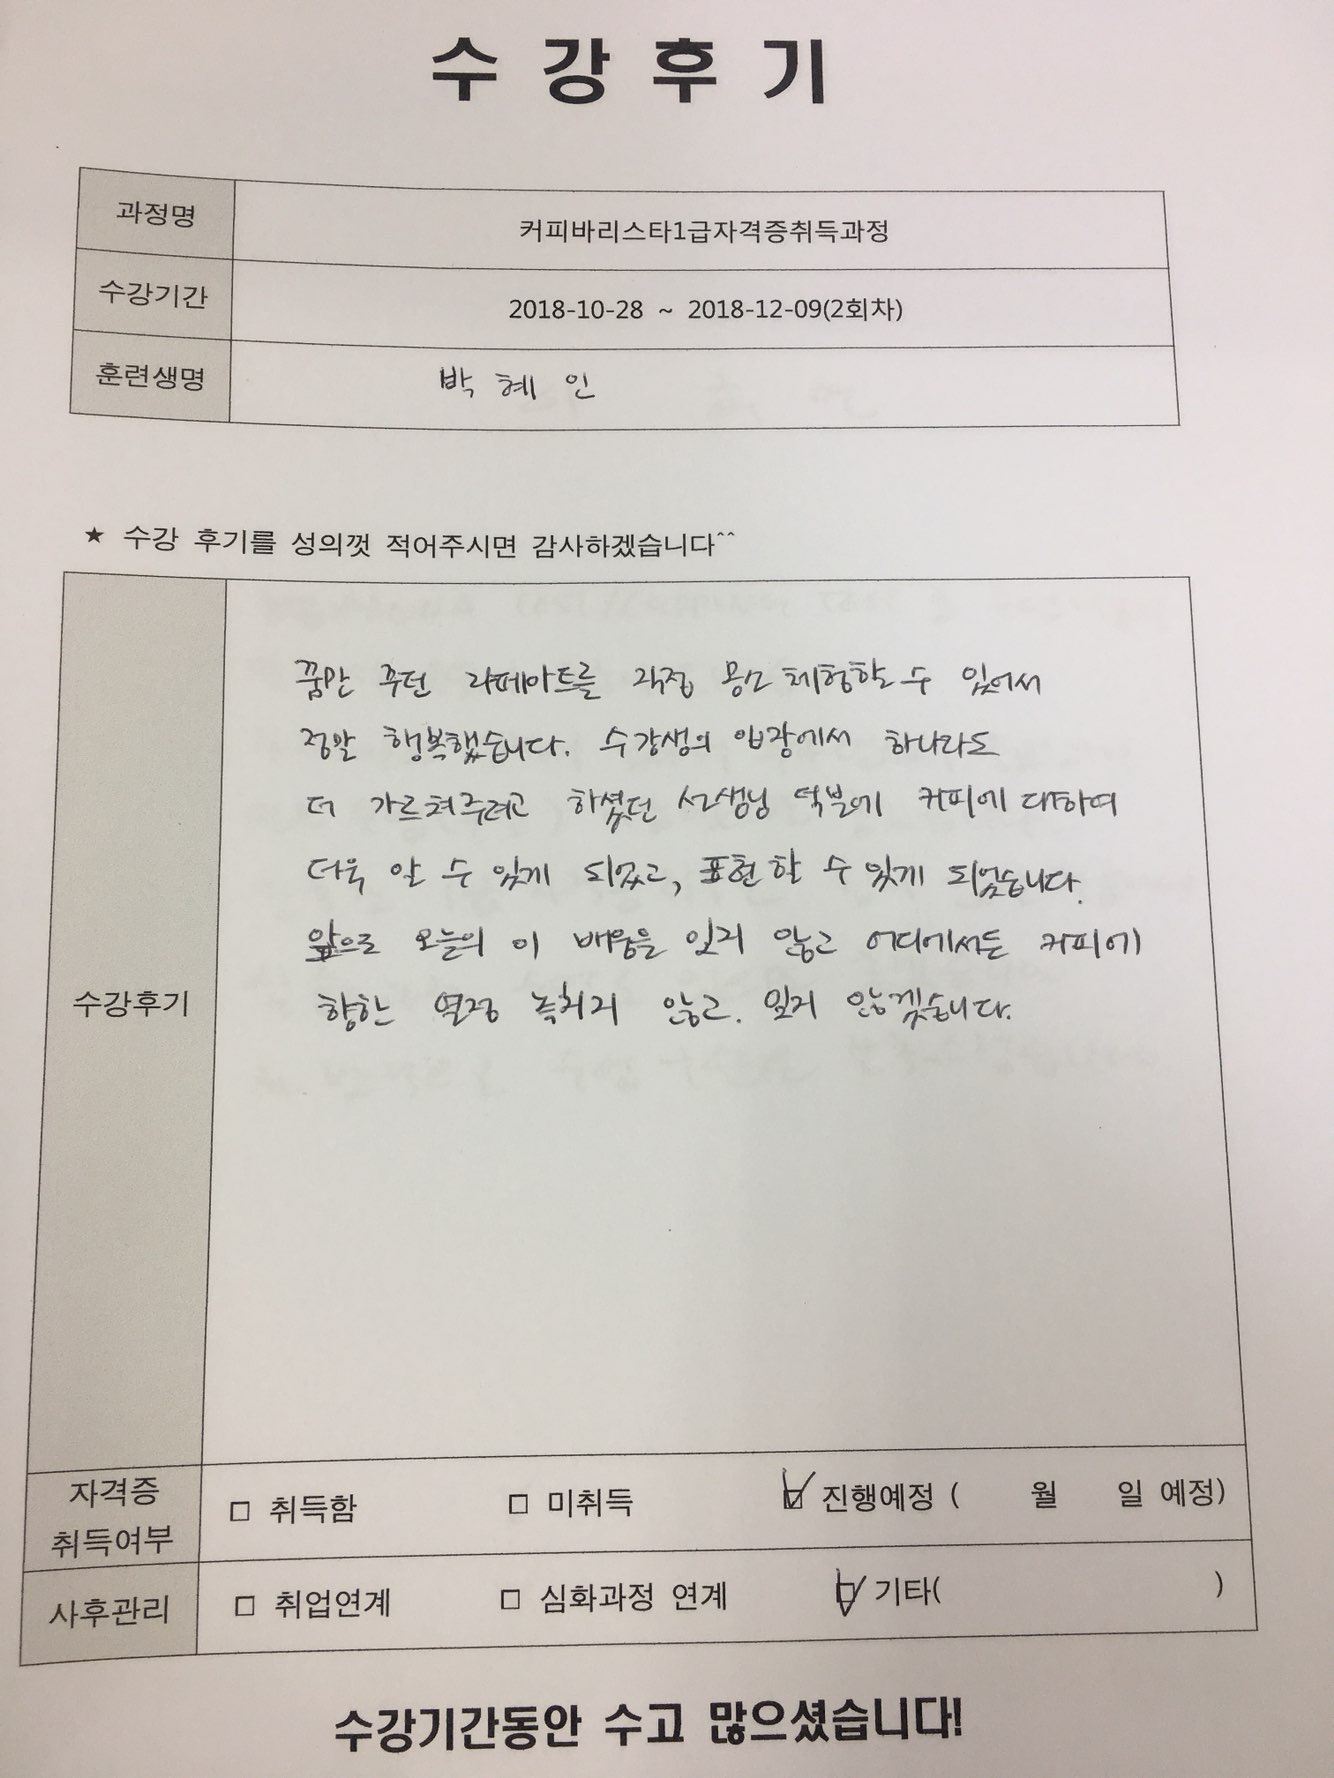 수강후기
과정명 커피바리스타1급자격증취득과정
수강기간 2018-10-28 ~ 2018-12-09(2회차)
훈련생명 박 혜 인
★ 수강 후기를 성의껏 적어주시면 감사하겠습니다^^
수강후기
꿈만 꾸던 라떼아트를 직접 몸으로 체험할 수 있어서
정말 행복했습니다. 수강생의 입장에서 하나라도
더 가르쳐주려고 하셨던 선생님 덕분에 커피에 대하여
더욱 알 수 있게 되었고, 표현할 수 있게 되었습니다.
앞으로 오늘의 이 배움을 잊지 않고 어디에서든 커피에
향한 열정 놓치지 않고. 잊지 않겠습니다.
자격증 취득여부 □ 취득함 □ 미취득 ☑ 진행예정 ( 월 일 예정)
사후관리 □ 취업연계 □ 심화과정 연계 ☑ 기타( )
수강기간동안 수고 많으셨습니다!